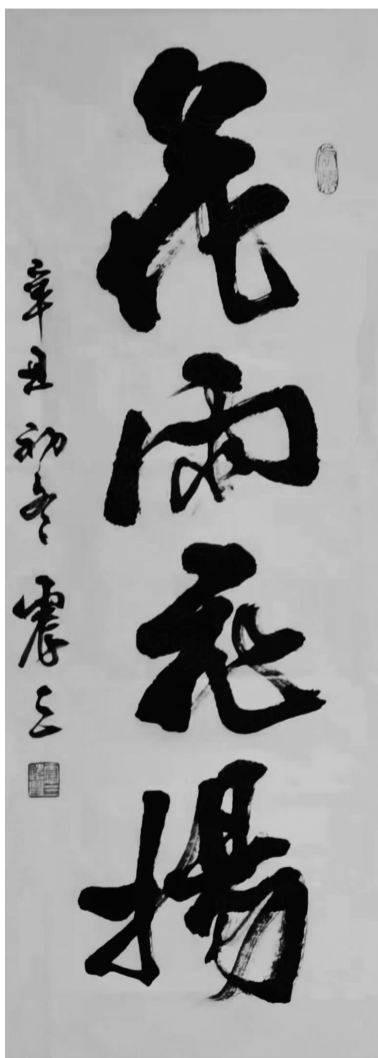 花雨飛揚
辛丑初冬震